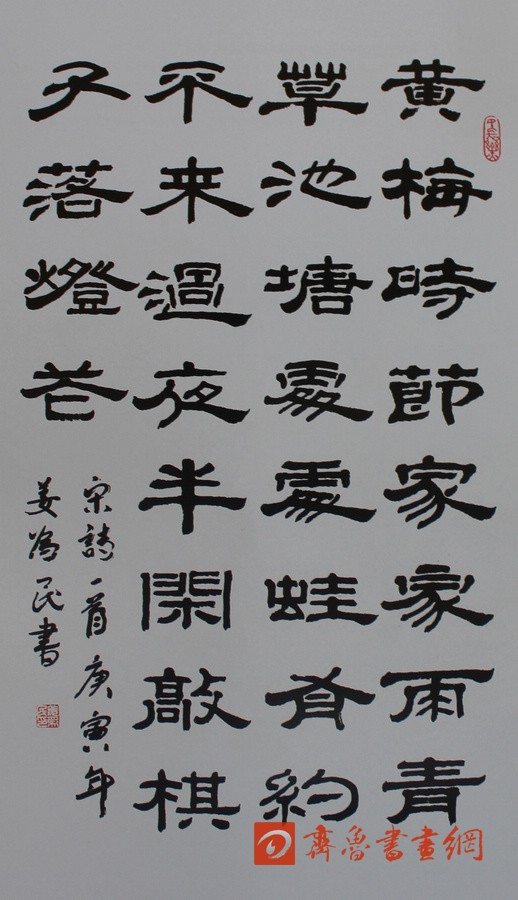 黄梅時節家家雨青
草池塘處處蛙有約
不来過夜半閑敲棋
子落燈花
宋詩一首庚寅年
姜 民書
齊魯書畫網